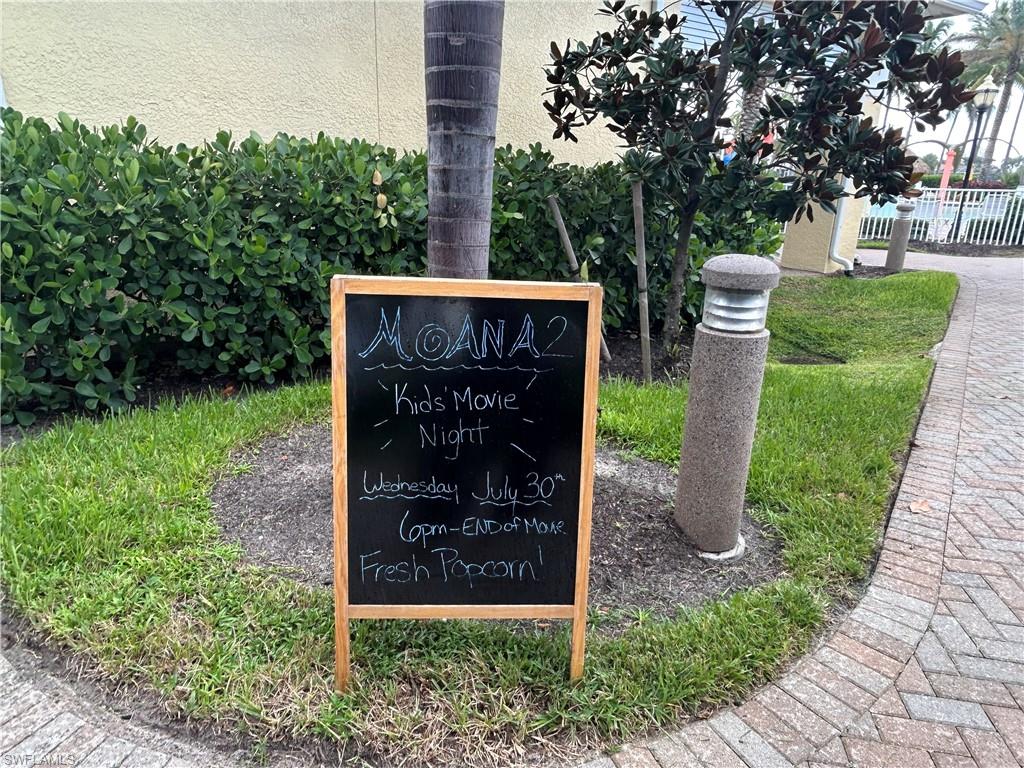 MOANA 2
Kids' Movie
Night
Wednesday July 30th
6pm - END of Movie
Fresh Popcorn!
SWFLAMLS